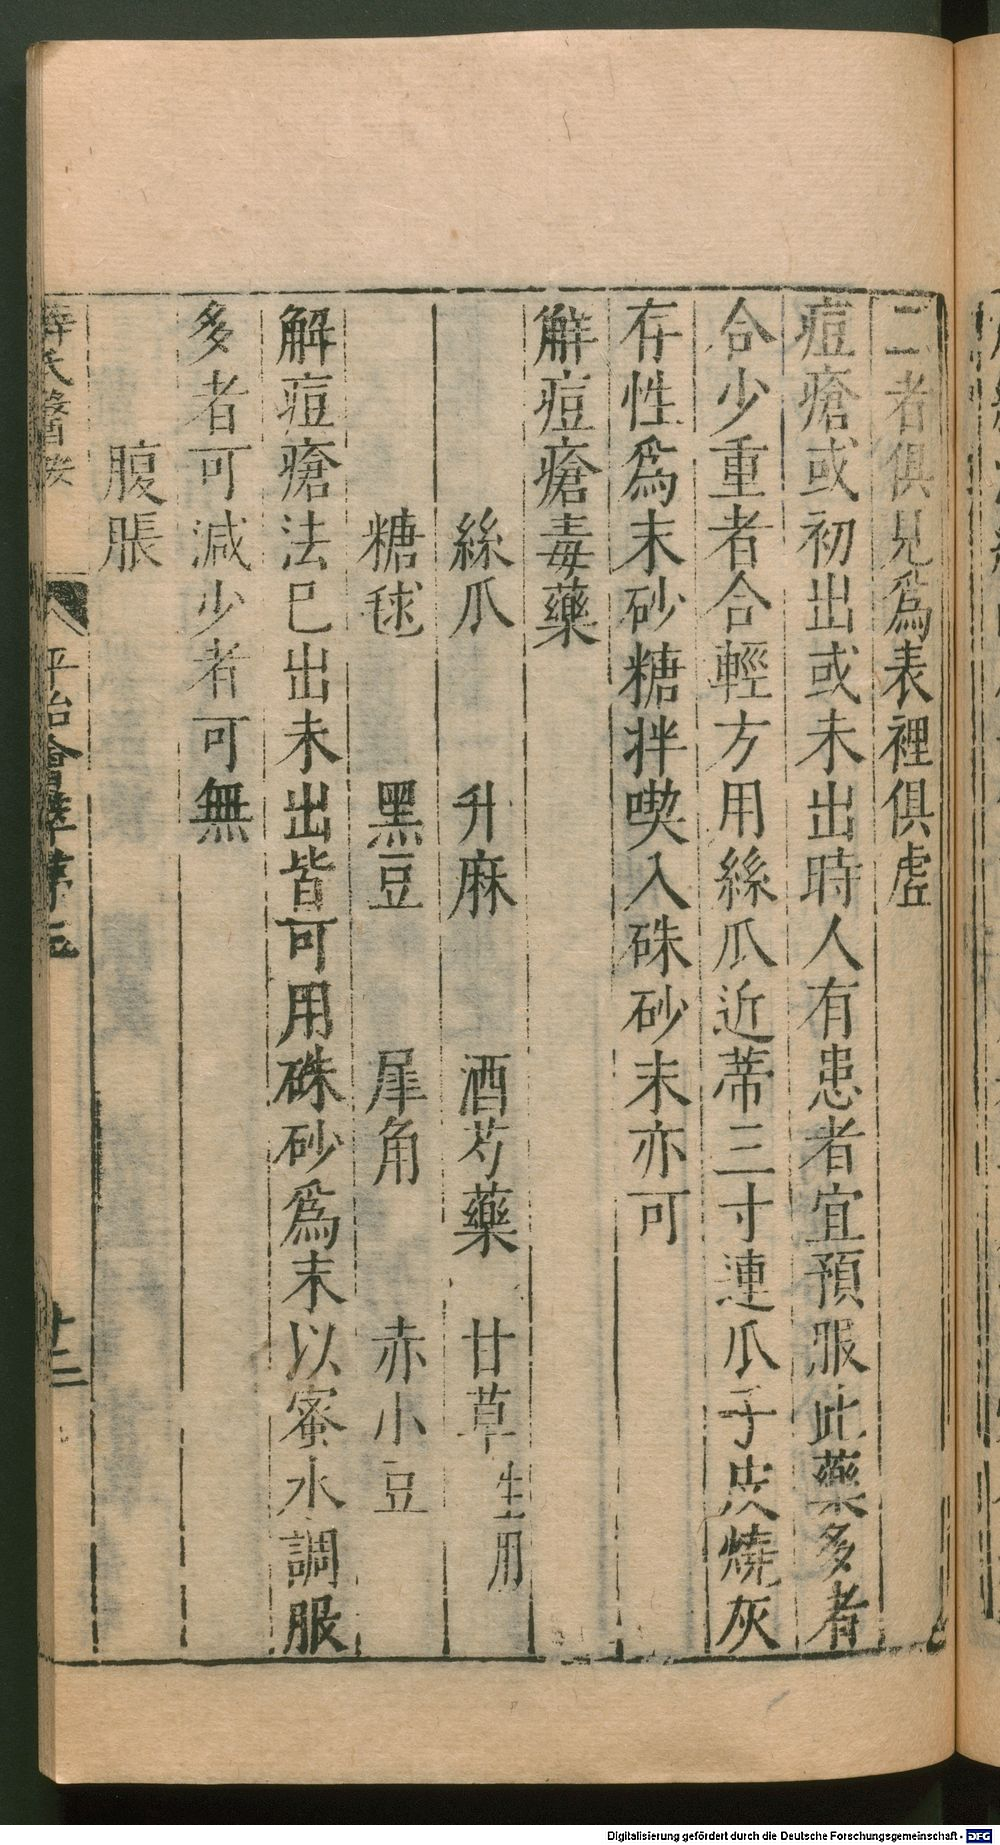 二者俱見爲表裡俱虛
痘瘡或初出或未出時人有患者宜預服此藥多者
合少重者合輕方用絲瓜近蒂三寸連瓜子皮燒灰
存性爲末砂糖拌喫入硃砂末亦可
觧痘瘡毒藥
絲瓜 升麻 酒芍藥 甘草生用
糖毬 黑豆 犀角 赤小豆
解痘瘡法已出未出皆可用硃砂爲末以蜜水調服
多者可減少者可無
腹脹
薛氏醫按 平治會萃卷三 廿二
Digitalisierung gefördert durch die Deutsche Forschungsgemeinschaft - DFG